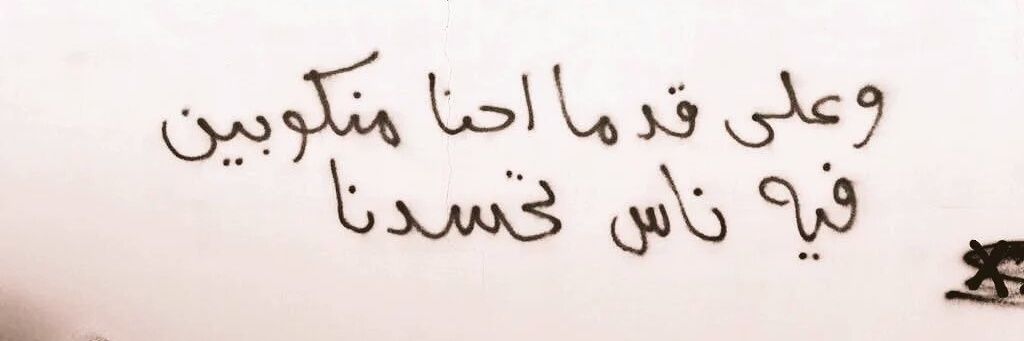 وعلى قد ما احنا منكوبين
فيه ناس تحسدنا